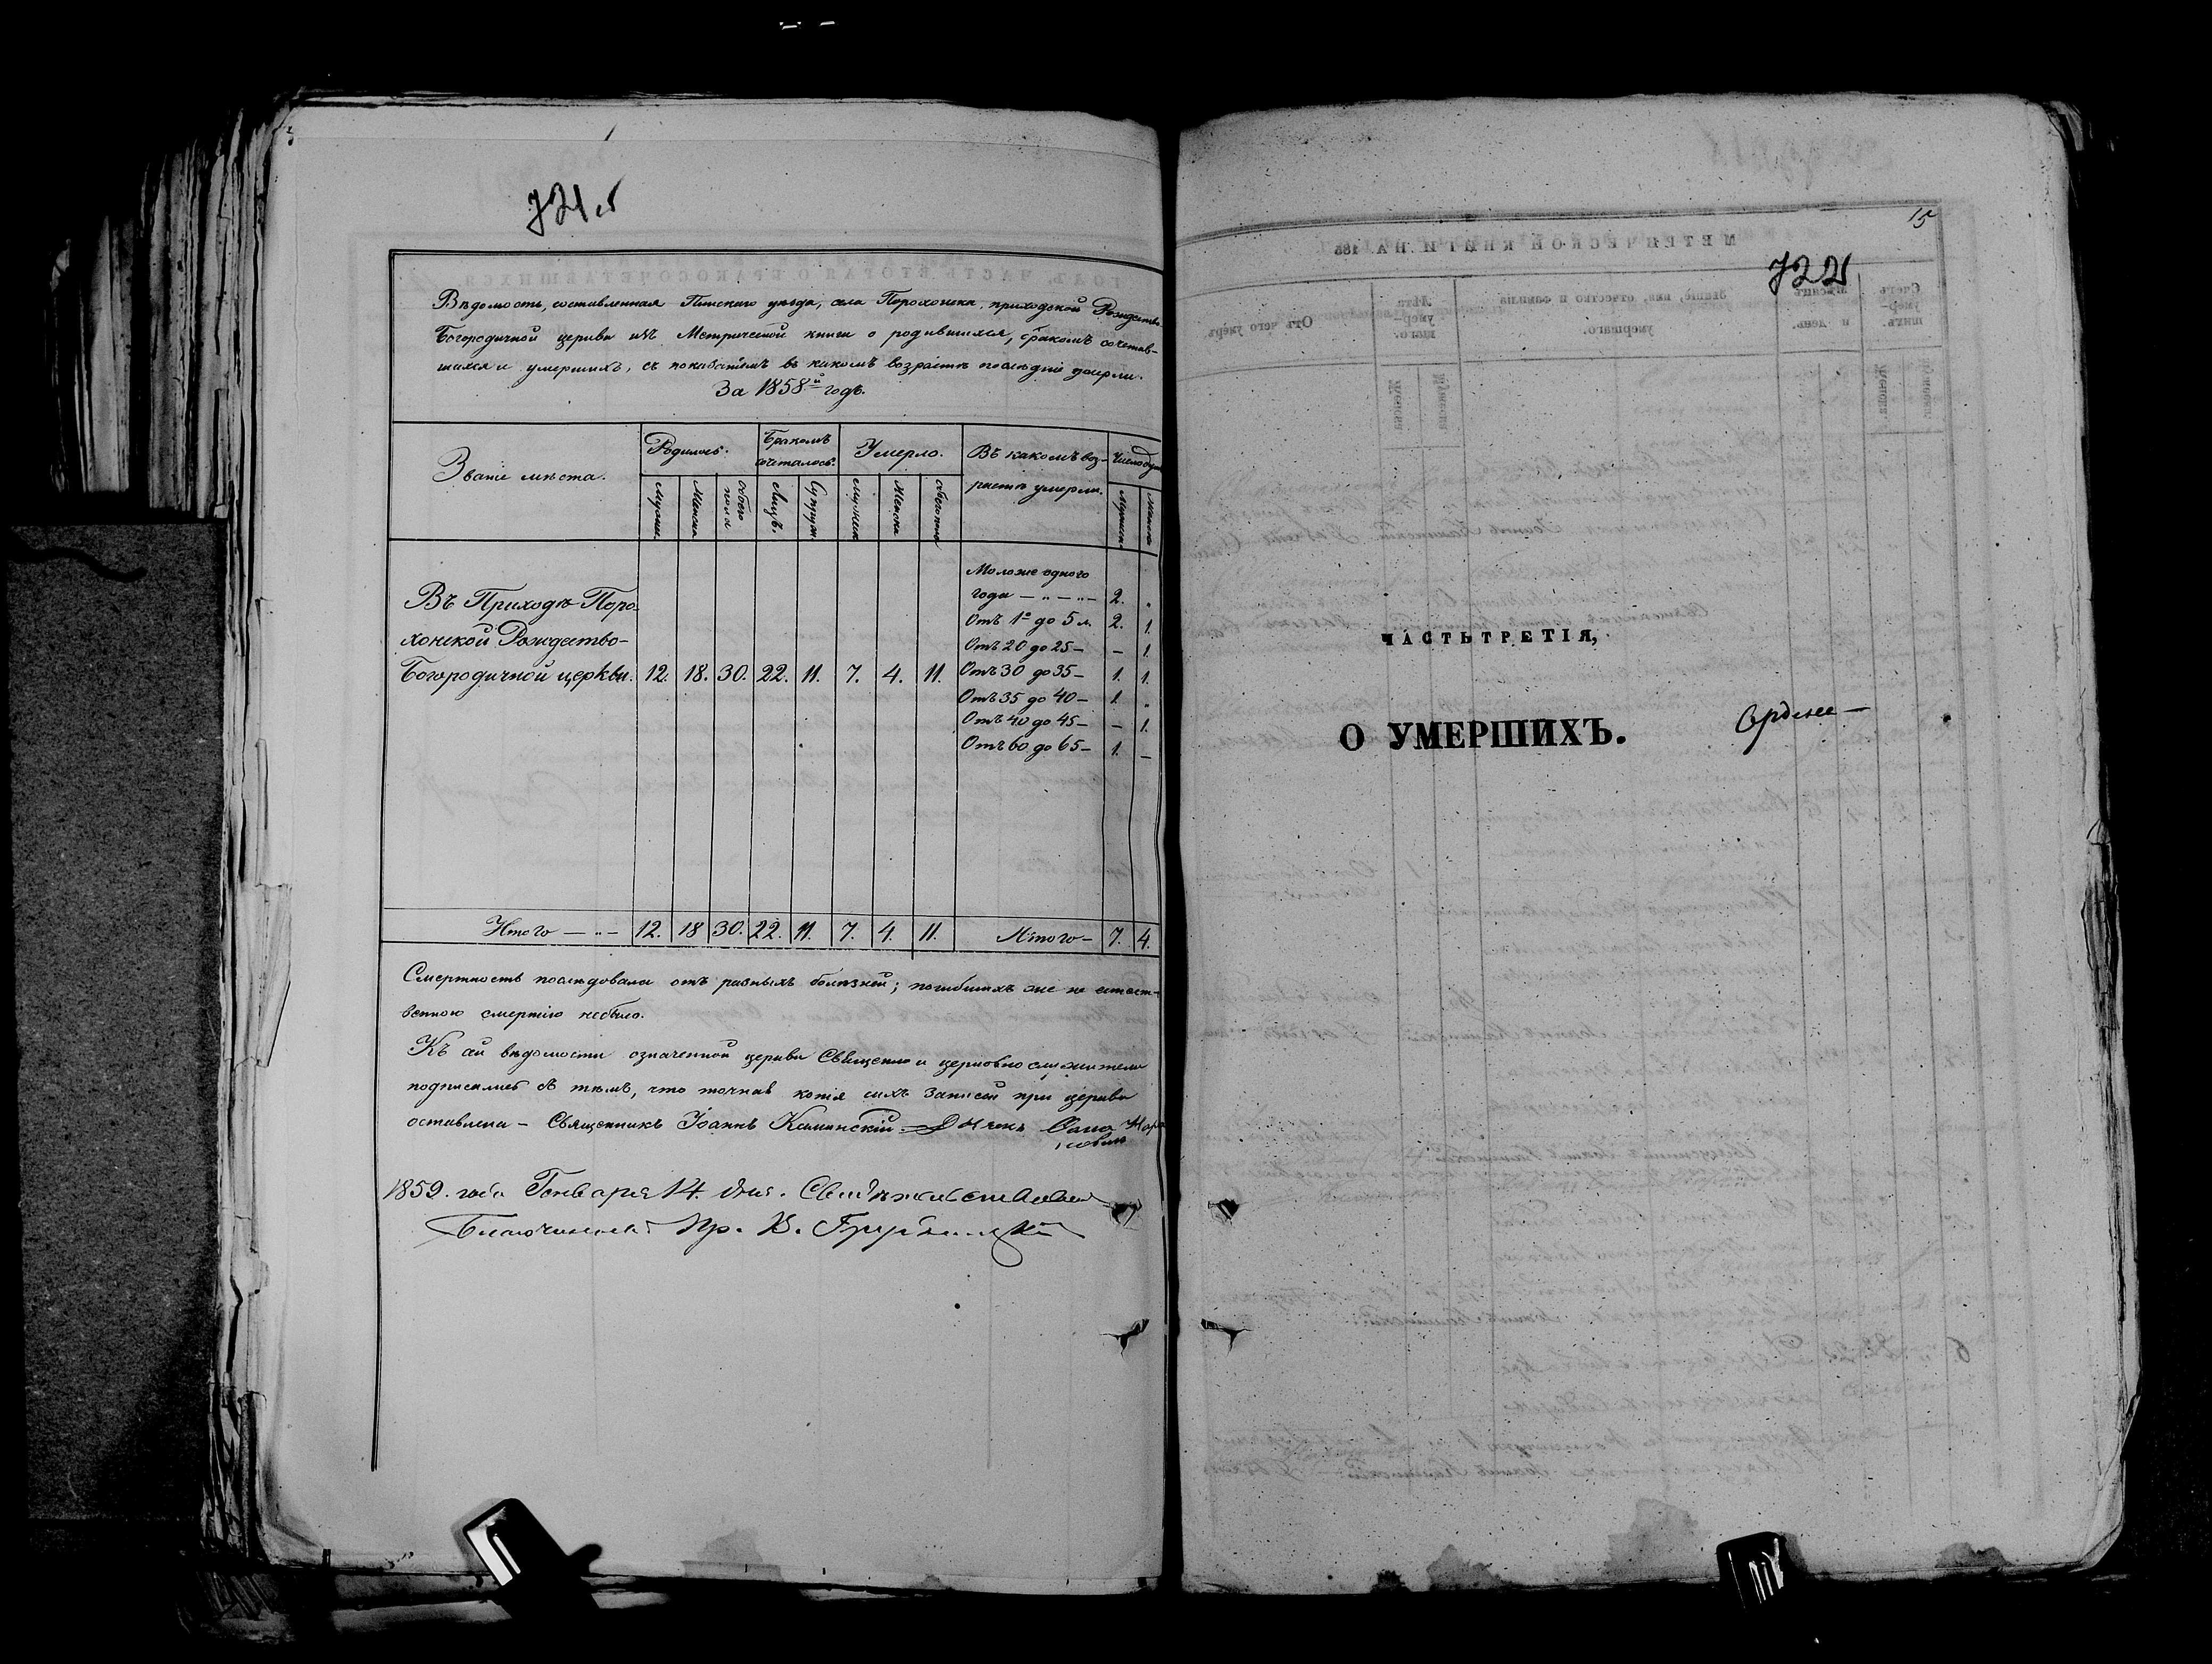 Вѣдомость, составленная Пинскаго уѣзда, села Порохонска, приходской Рождество-
Богородичной церкви изъ Метрической книги о родившихся, бракомъ сочетав-
шихся и умершихъ, съ показаніемъ въ какомъ возрастѣ послѣдніе умерли.
За 1858й годъ.
Званіе мѣста.
Родилось.
Бракомъ сочеталось.
Умерло.
Въ какомъ воз-
растѣ умерли.
Число душъ
Мужска. Женска обоего пола Лицъ. Супруж. Мужска Женска обоего пола Мужска. Женска
Въ Приходѣ Поро-
хонской Рождество-
Богородичной церкви. 12. 18. 30. 22. 11. 7. 4. 11.
Моложе одного
года — „ — „ — 2. „
Отъ 1го до 5 л. 2. 1.
Отъ 20 до 25 — – 1.
Отъ 30 до 35 — 1. 1.
Отъ 35 до 40 — 1. „
Отъ 40 до 45 — – 1.
Отъ 60 до 65 — 1. –
Итого — „ — 12. 18 30. 22. 11. 7. 4. 11. Итого — 7. 4.
Смертность послѣдовала отъ разныхъ болѣзней; погибшихъ же не естест-
венною смертію небыло.
Къ сей вѣдомости означенной церкви Священно и церковно служители
подписались съ тѣмъ, что точная копія сихъ записей при церкви
оставлена – Священникъ Іоаннъ Каминскій.
1859. года Генваря 14. дня. Свидѣтельствовалъ
Благочинный Пр. В.
15
722
ЧАСТЬ ТРЕТІЯ,
О УМЕРШИХЪ.